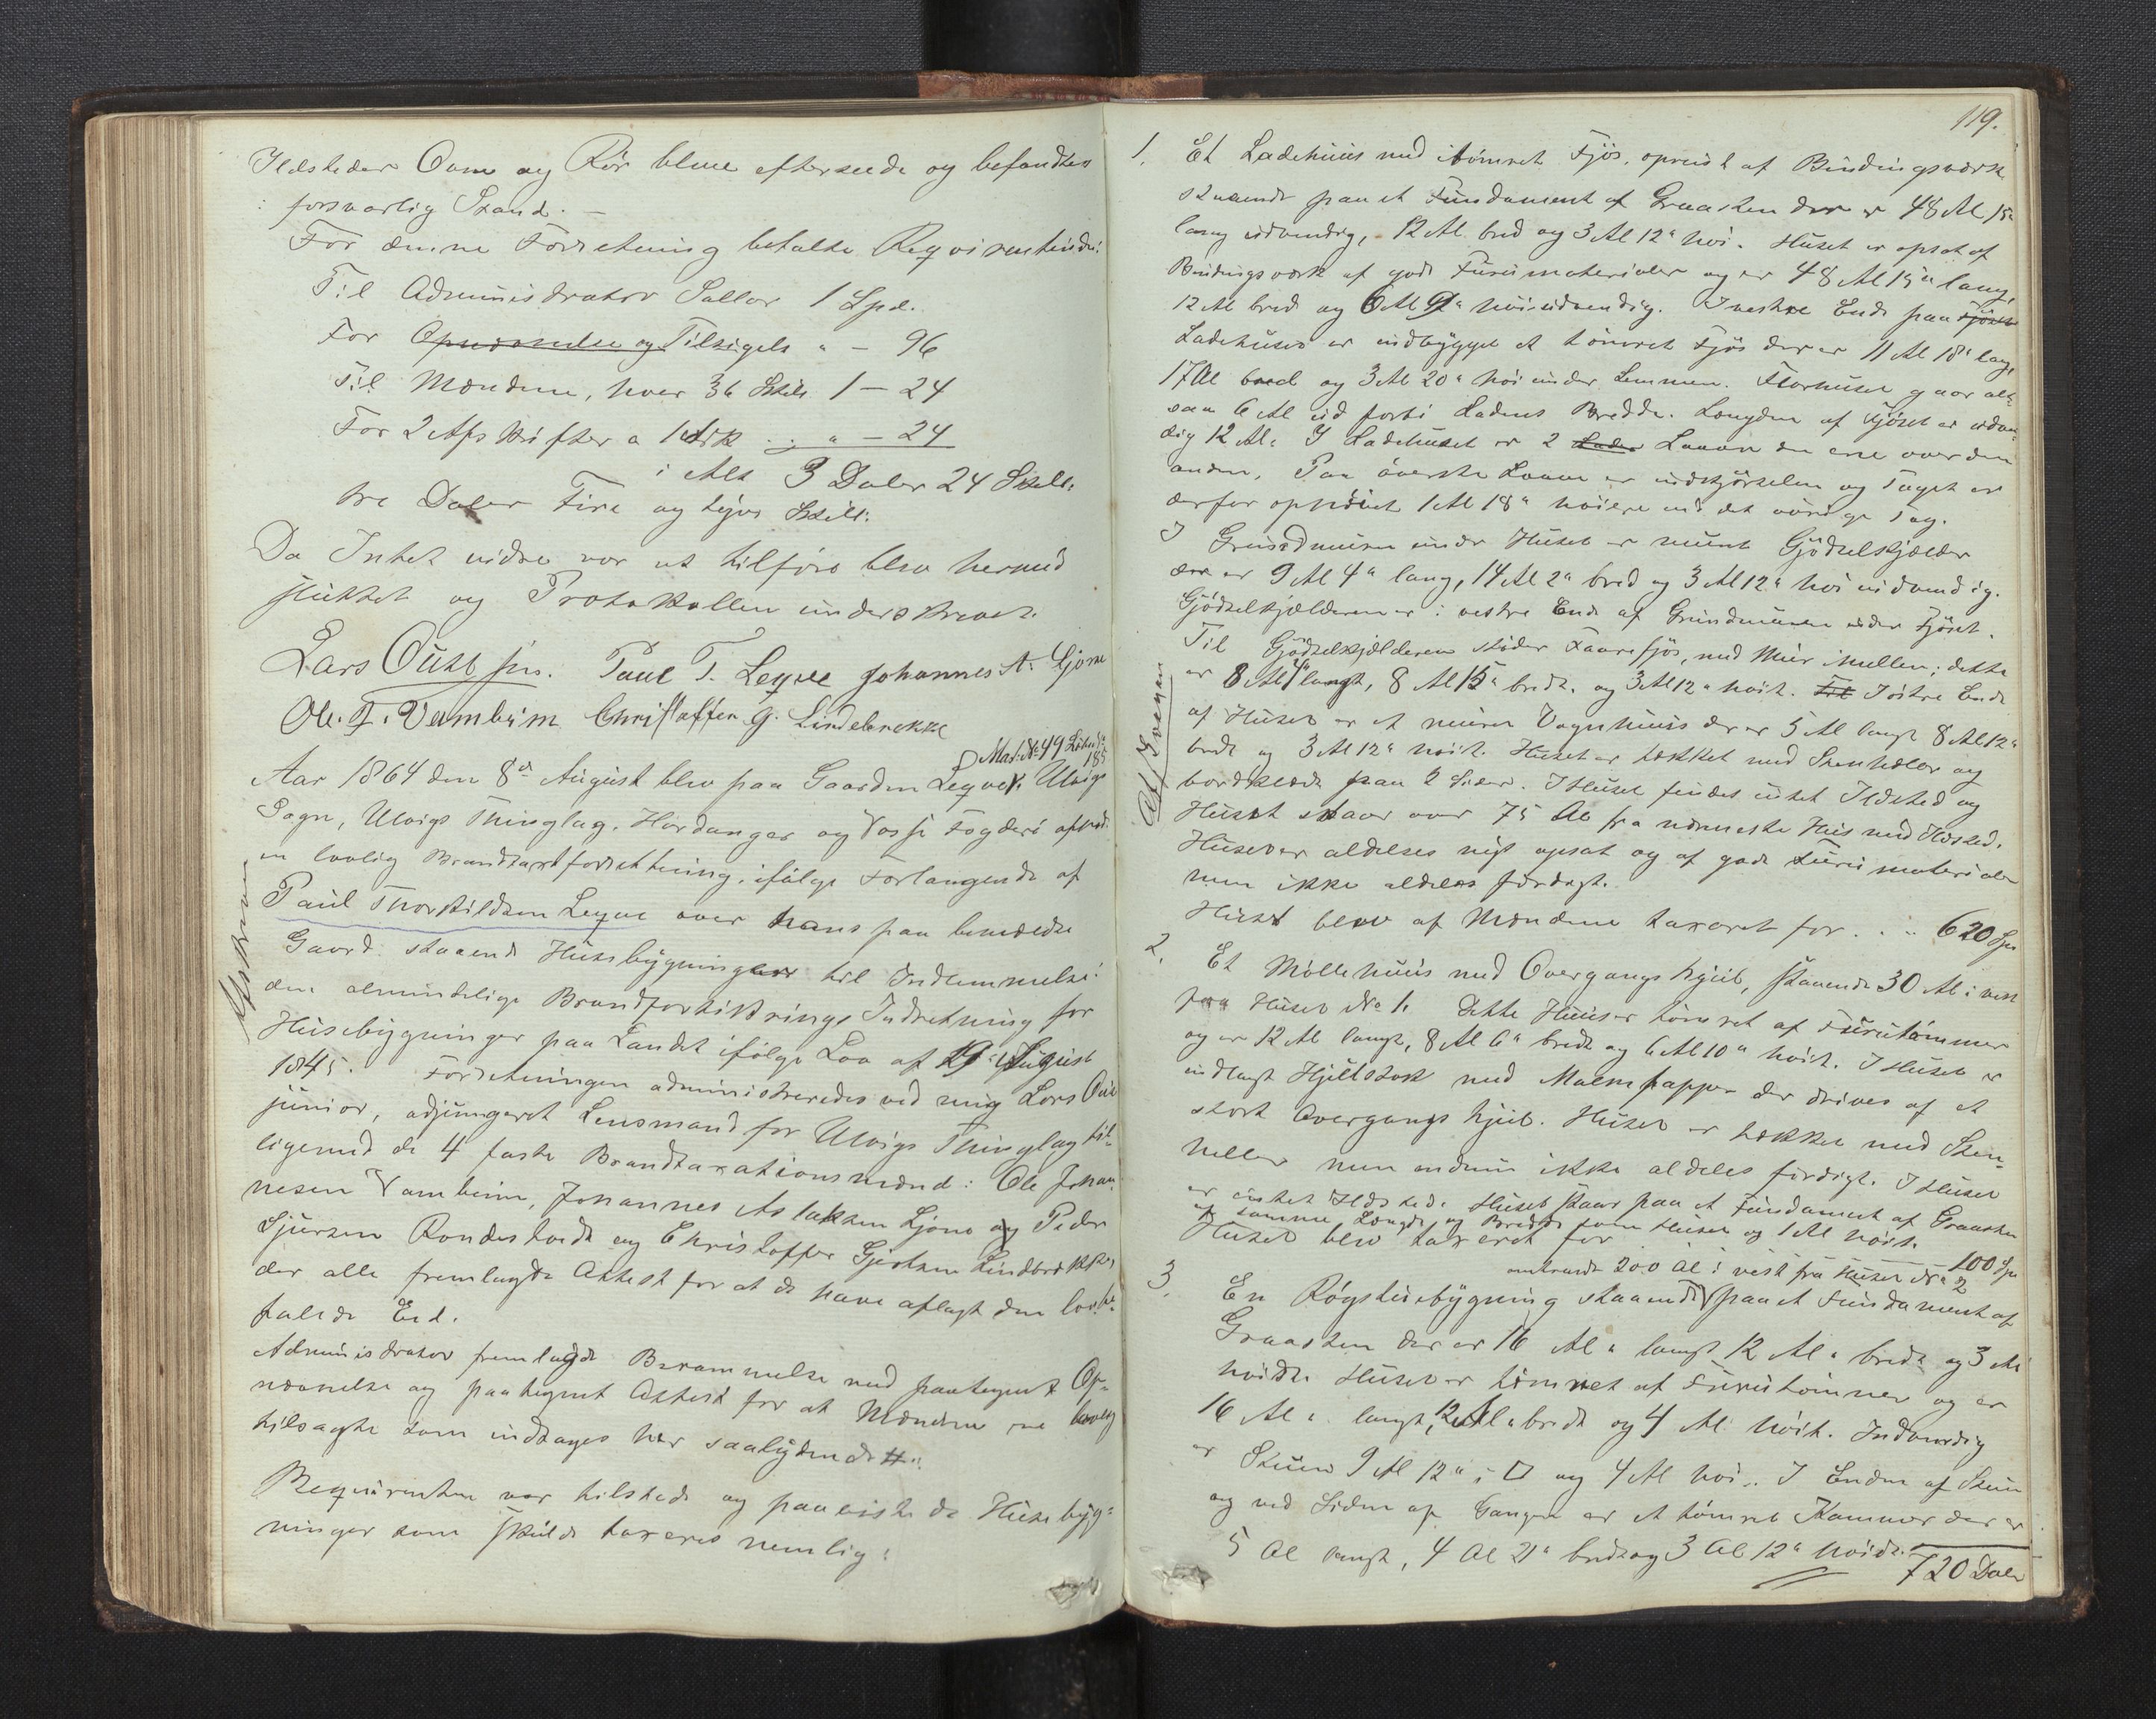 Ildsteder Ovne og Rør bleve efterseede og befandtes
i forsvarlig Stand. —
For denne Forretning betalte Reqvirentinde:
Til Administrator Sallar 1 Spd.
For Opnævnelse og Tilsigels " — 96
Til Mændene, hver 36 Skill. 1 — 24
For 2 Afskrifter a 1 Ark . . " — 24
i Alt 3 Daler 24 Skill:
tre Daler Fire og tyve Skill:
Da Intet vidre var at tilføre blev hermed
sluttet og Protokollen underskrevet.
Lars Huus jun. Paul T. Leqve Johannes A. Ljone
Ole. J. Vambeim Christoffer G. Lindebrekke
Mat: No 49 Løbe No 185
Aar 1864 den 8de August blev paa Gaarden Leqve i Ulvigs
Sogn, Ulvigs Thinglag, Hardanger og Vosse Fogderi afholdt
en lovlig Brandtaxtforretning, ifølge Forlangende af
Paul Thorkildsen Leqve over hans paa bemeldte
Gaard staaende Huusbygninger til Indlemmelse i
den almindelige Brandforsikrings Indretning for
Husebygninger paa Landet ifølge Lov af 19 August
1845. Forretningen administreredes ved mig Lars
junior, adjungeret Lensmand for Ulvigs Thinglag til-
ligemed de 4 faste Brandtaxationsmænd: Ole Johan-
nesen Vambeim, Johannes Aslaksen Ljone og Peder
Sjursen Rondestvedt og Christoffer Gjertsen Lindebrekke,
der alle fremlagde Attest for at de have aflagt den lovbe-
falede Eed.
Administrator fremlagde Berammelse med paategnet Op-
nævnelse og paategnet Attest for at Mændene ere lovlig
tilsagte som indtages her saalydende #.
Reqvirenten var tilstede og paaviste de Husebyg-
ninger som skulde taxeres nemlig:
Afskreven
119.
1. Et Ladehuus med itømret Fjøs, opreist af Bindingsværk
staaende paa et Fundament af Graasten der er 48 Al 15"
lang udvendig, 12 Al bred og 3 Al 12" høi. Huset er opsat af
Bindingsværk af gode Furumaterialer og er 48 Al 15" lang,
12 Al bred og 6 Al 9" høi udvendig. I vestre Ende paa Fjøset
Ladehuset er indbygget et tømret Fjøs der er 11 Al 18" lang,
17 Al bred og 3 Al 20" høi under Lemmen. Florhuset gaar alt-
saa 6 Al ud forbi Ladens Bredde. Længden af Fjøset er udven-
dig 12 Al. I Ladehuset er 2 Lader Laaver den ene over den
anden. Paa øverste Laave er indkjørselen og Taget er
derfor ophøiet 1 Al 18" høiere end det øvrige Tag.
I Grundmuren under Huset er muret Gjødselkjælder
der er 9 Al 4" lang, 14 Al 2" bred og 3 Al 12" høi udvendig.
Gjødselkjælderen er i vestre Ende af Grundmuren under Fjøset.
Til Gjødselkjælderen støder Faarefjøs, med Muur imellem; dette
er 8 Al 4" langt, 8 Al 15" bredt, og 3 Al 12" høit. I østre Ende
af Huset er et muret Vognhuus der er 5 Al langt 8 Al 12"
bredt og 3 Al 12" høit. Huset er tækket med Stenheller og
bordklædt paa 2 Sider. I Huset findes intet Ildsted og
Huset staar over 75 Al fra nærmeste Huus med Ildsted.
Huset er aldeles nyt opsat og af gode Furu materialer
men ikke aldeles færdigt.
Huset blev af Mændene taxeret for . . . 620 Spd
2. Et Møllehuus med Overgangs hjul, staaende 30 Al i vest
fra Huset No 1. Dette Huus er tømret af Furutømmer
og er 12 Al langt, 8 Al 6" bredt og 6 Al 10" høit. I Huset er
indlagt Hjulstok med Malmtapper der drives af et
stort Overgangs hjul. Huset er tækket med Sten-
heller men endnu ikke aldeles færdigt. I Huset
er intet Ildsted. Huset staar paa et Fundament af Graasten
af samme Længde og Bredde som Huset og 1 Al høit.
Huset blev taxeret for — 100 Spd
omtrendt 200 Al i vest fra Huset No 2
3. En Røgstuebygning staaende paa et Fundament af
Graasten der er 16 Al " langt 12 Al " bredt og 3 Al
høidt. Huset er tømret af Furutømmer og er
16 Al " langt, 12 Al " bredt og 4 Al høit. Indvendig
er Stuen 9 Al 12" i □ og 4 Al høi. I Enden af Stuen
og ved Siden af Gangen er et tømret Kammer der er
5 Al langt, 4 Al 21" bredt og 3 Al 12" høidt.
720 Daler